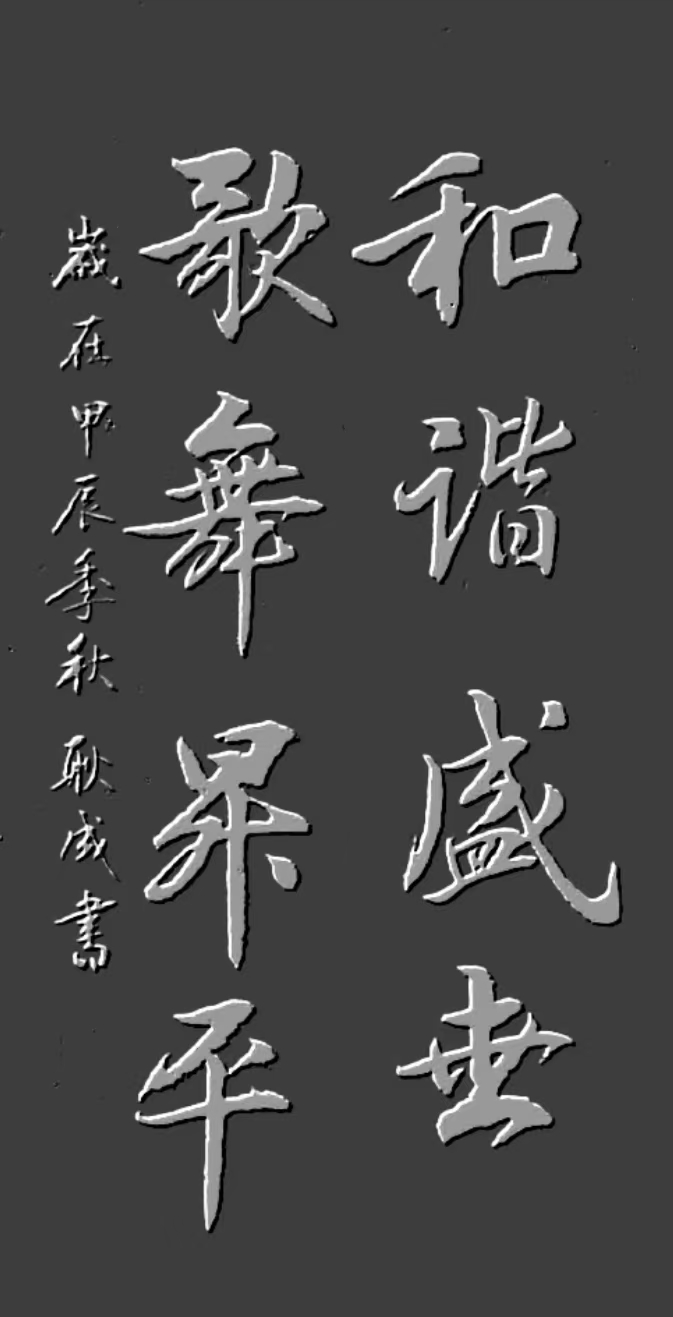 和谐盛世
歌舞昇平
歲在甲辰季秋 耿成書